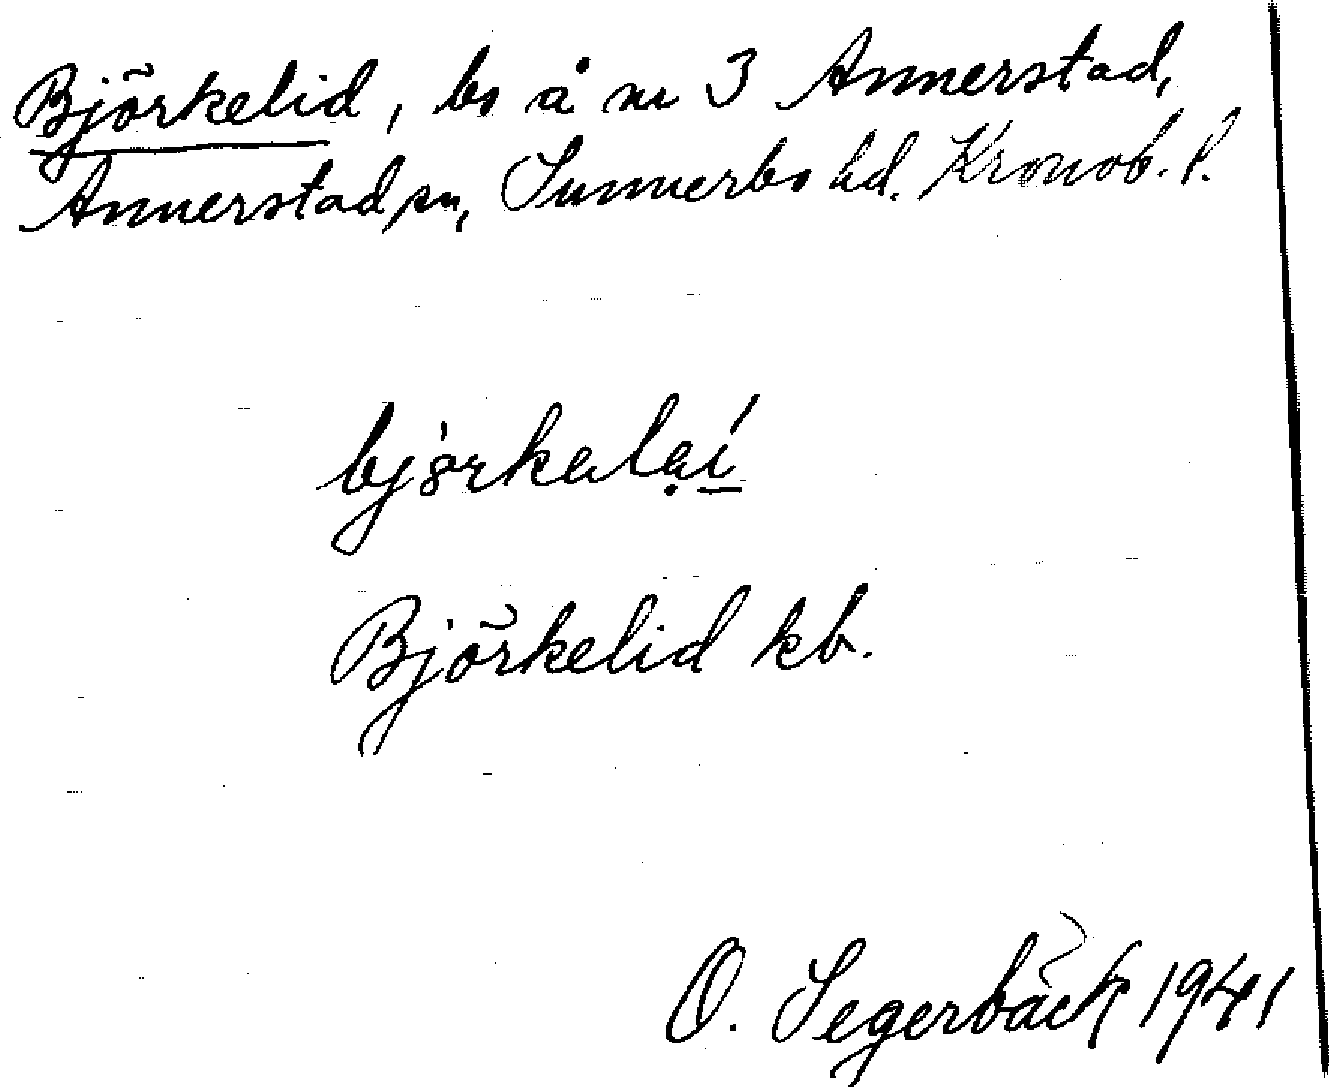 Björkelid, bs å nr 3 Annerstad,
Annerstad sn, Sunnerbo hd. Kronob. l.
björkalai
Björkelid kb.
O. Segerbäck 1941